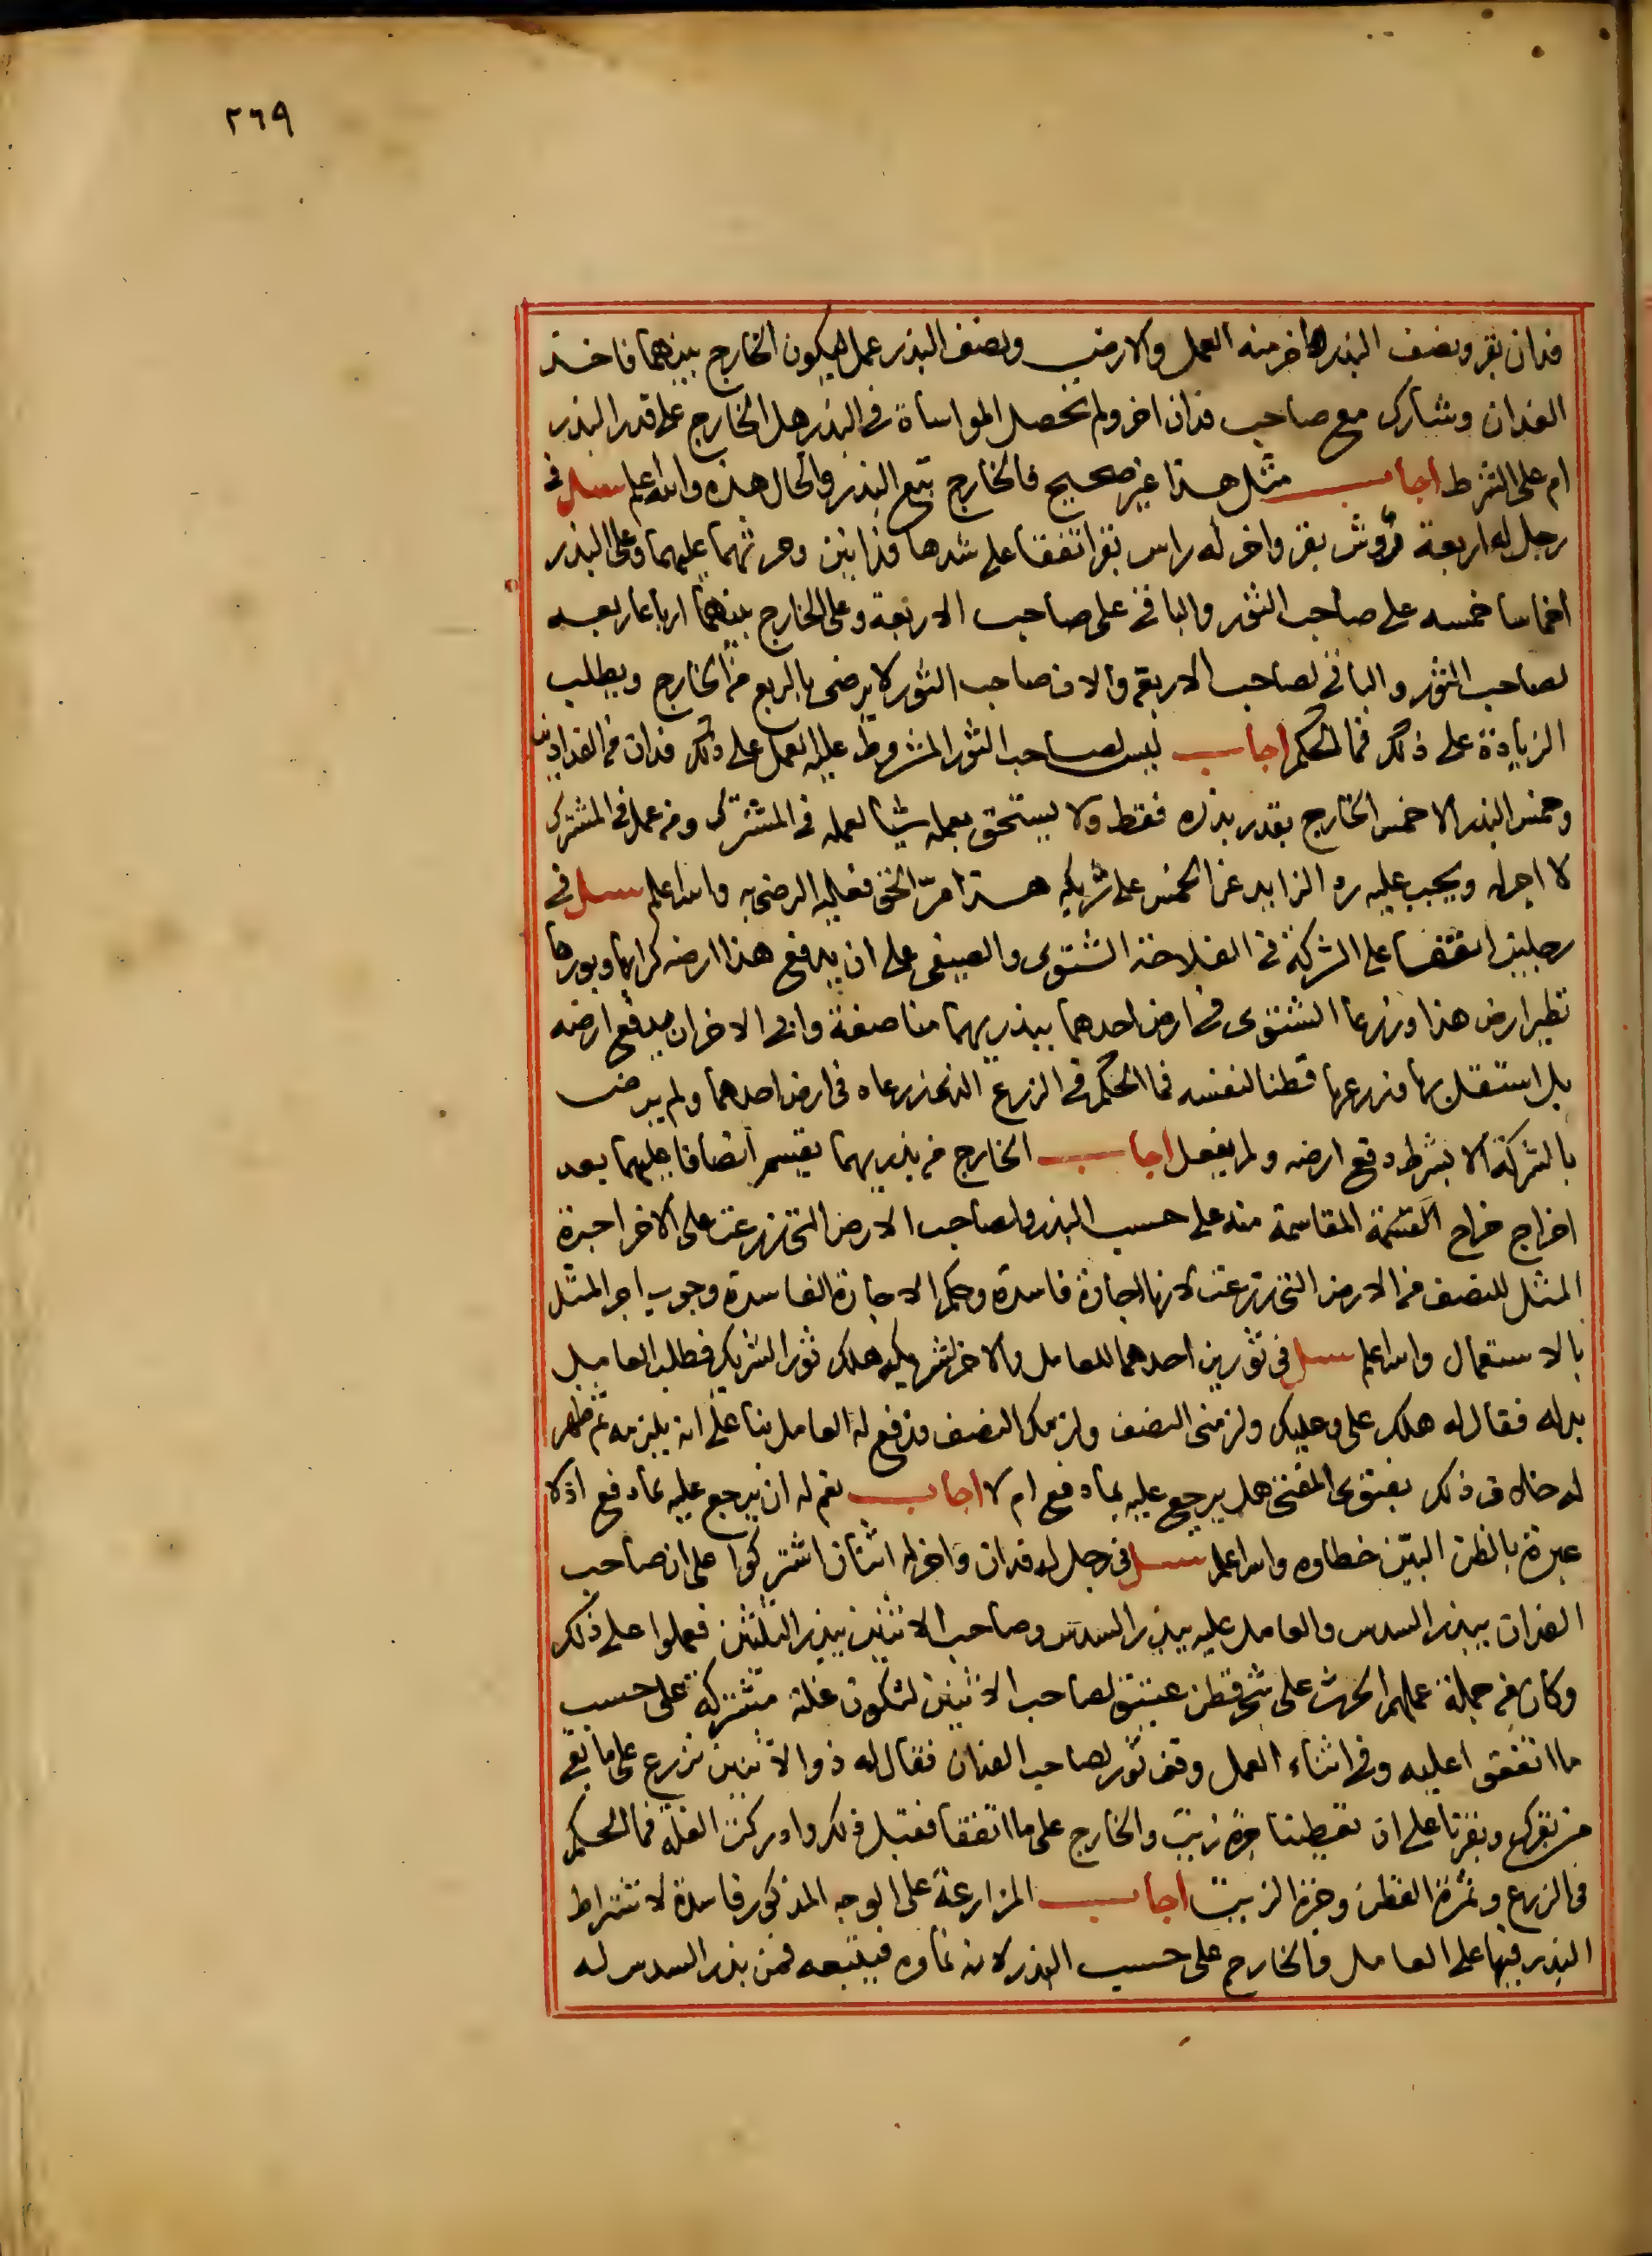 ٢٦٩
فدان بقر ونصف البذر واخر منه العمل والارض ونصف البذر عمل ليكون الخارج بينهما فاخذ
الفدان وشارك مع صاحب فدان اخر ولم تحصل المواساة في البذر هل الخارج على قدر البذر
ام على الشرط اجاب مثل هذا غير صحيح فالخارج يتبع البذر والحال هذه والله اعلم سئل في
رجل له اربعة رؤس بقر واخر له راس بقر اتفقا على شدها فدانين وحرثهما عليهما وعلى البذر
اخماسا خمسه على صاحب الثور والباقي على صاحب الاربعة وعلى الخارج بينهما ارباعا ربعه
لصاحب الثور والباقي لصاحب الاربعة والان صاحب الثور لا يرضى بالربع من الخارج ويطلب
الزيادة على ذلك فما الحكم اجاب ليس لصاحب الثور المشروط عليه العمل على ذلك فدان من الفدادين
وخمس البذر الا خمس الخارج بقدر بذره فقط ولا يستحق بعمله شيا لعمله في المشترك ومن عمل في المشترك
لا اجر له ويجب عليه رد الزايد عن الخمس على شريكه هذا مرّ الحق فعليه الرضى به والله اعلم سئل في
رجلين اتفقا على الشركة في الفلاحة الشتوى والصيفى على ان يدفع هذا ارضه كرابها وبورها
نظير ارض هذا وزرعا الشتوى في ارض احدهما ببذريهما مناصفة وابى الاخر ان يدفع ارضه
بل استقل بها وزرعها قطنا لنفسه فما الحكم في الزرع الذي زرعاه في ارض احدهما ولم يرض
بالشركة الا بشرط دفع ارضه ولم يفعل اجاب الخارج من بذريهما يقسم انصافا عليهما بعد
اخراج خراج القسمة المقاسمة منه على حسب البذر ولصاحب الارض التي زرعت على الاخر اجرة
المثل للنصف من الارض التي زرعت لانها اجارة فاسدة وحكم الاجارة الفاسدة وجوب اجر المثل
بالاستعمال والله اعلم سئل في ثورين احدهما للعامل والاخر لشريكه هلك ثور الشريك فطلب العامل
بدله فقال له هلك على وعليك ولزمنى النصف ولزمك النصف فدفع له العامل بنا على انه يلزمه ثم ظهر
له خلاف ذلك بفتوى المفتى هل يرجع عليه بما دفع ام لا اجاب نعم له ان يرجع عليه بما دفع اذ لا
عبرة بالظن البيّن خطاوه والله اعلم سئل في رجل له فدان واخر له اثنان اشتركوا على ان صاحب
الفدان يبذر السدس والعامل عليه يبذر السدس وصاحب الاثنين يبذر الثلثين فعملوا على ذلك
وكان من جملة عملهم الحرث على شجر قطن عتيق لصاحب الاثنين لتكون غلته مشتركة على حسب
ما اتفقوا عليه وفي اثناء العمل وقف ثور لصاحب الفدان فقال له ذو الاثنين نزرع على ما بقى
من بقرك وبقرنا على ان تعطينا جرة زيت والخارج على ما اتفقا فقبل ذلك وادركت الغلة فما الحكم
في الزرع وثمرة القطن وجرة الزيت اجاب المزارعة على الوجه المذكور فاسدة لاشتراط
البذر فيها على العامل فالخارج على حسب البذر لانه نماوه فيتبعه فمن بذر السدس له